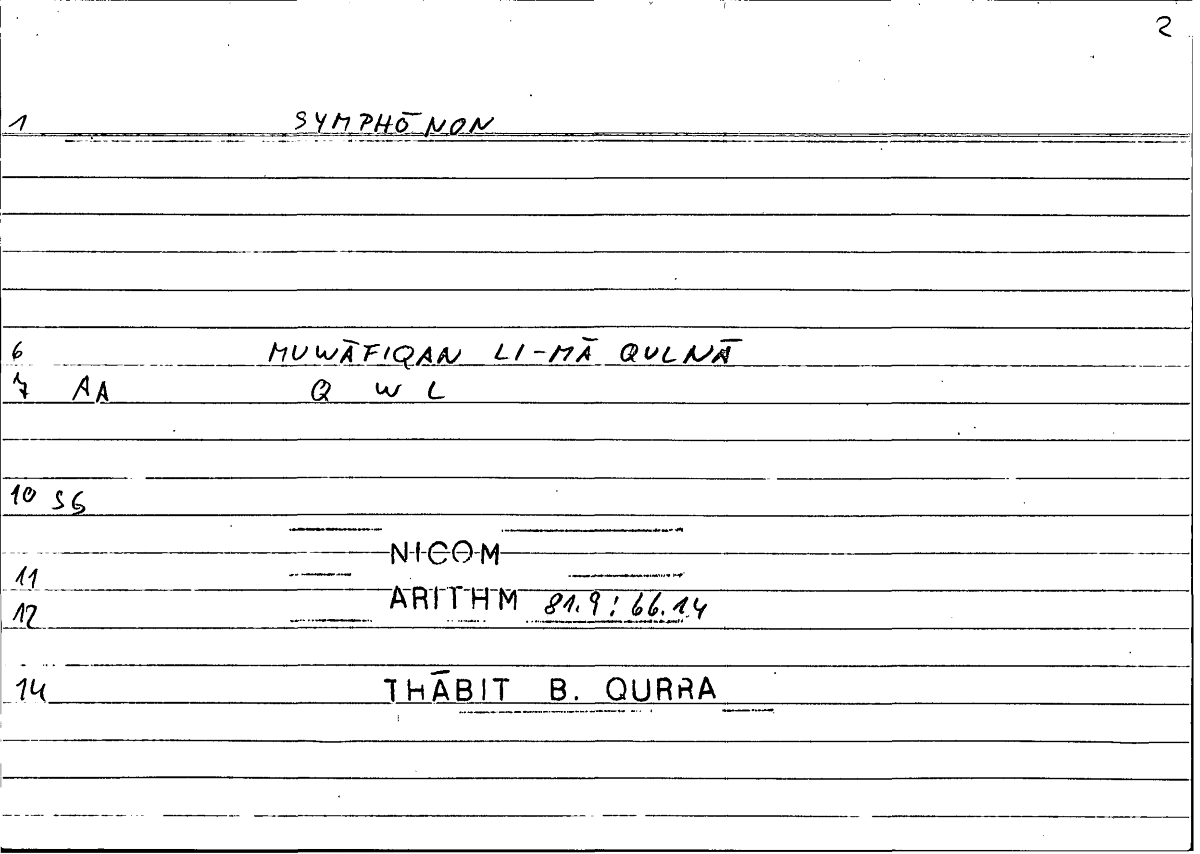 2
1 SYMPHŌNON
6 MUWĀFIQAN LI-MĀ QULNĀ
7 AA Q W L
10 SG
NICOM
11
ARITHM 81.9 : 66.14
12
14 THĀBIT B. QURRA